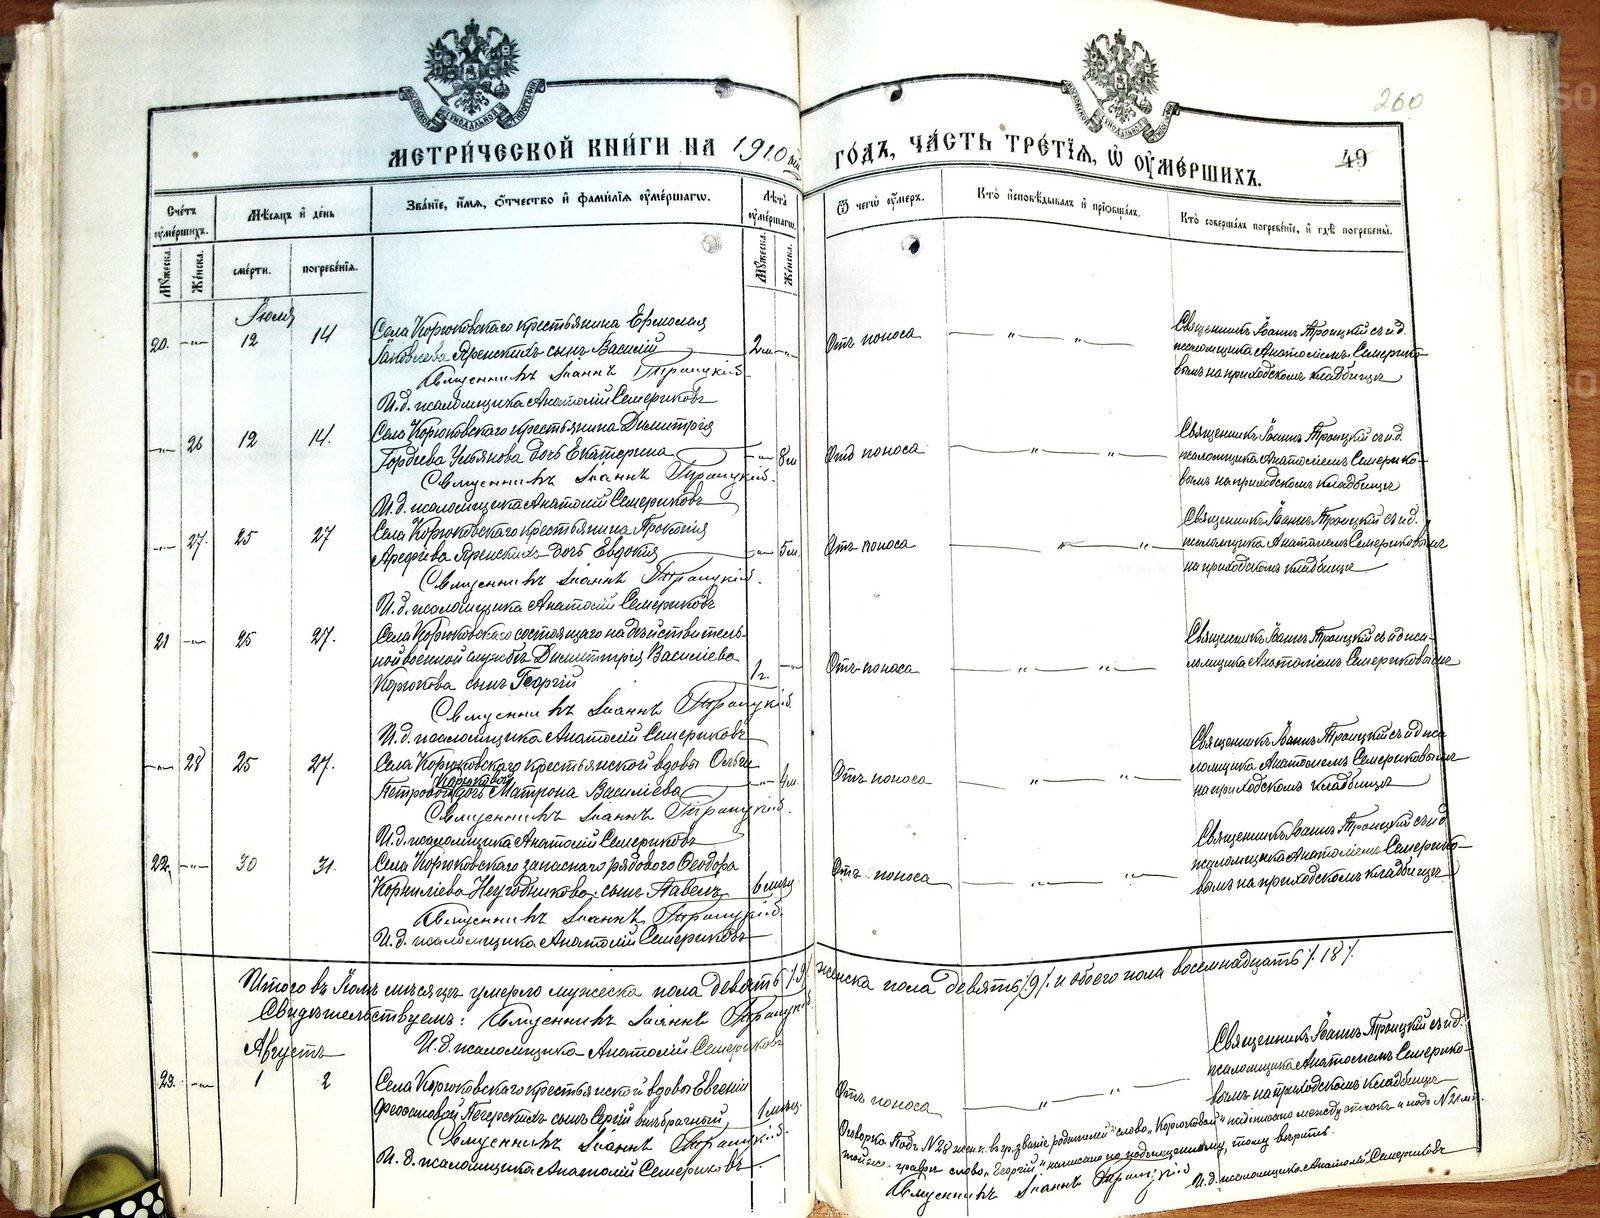 260
МЕТРИ́ЧЕСКОЙ КНИ́ГИ НА 1910 ый ГО́ДЪ, ЧА́СТЬ ТРЕ́ТІЯ, Ѡ҆ ОУ҆МЕ́РШИХЪ.
49
Сче́тъ оу҆ме́ршихъ.
Мѣ́сяцъ и҆ де́нь
Зва́нїе, и҆́мя, ѻ҆́тчество и҆ фами́лїя оу҆ме́ршагѡ.
Лѣ́та оу҆ме́ршагѡ.
Ѿ чегѡ̀ оу҆́меръ.
Кто̀ и҆сповѣ́дывалъ и҆ прїѡбща́лъ.
Кто̀ соверша́лъ погребе́нїе, и҆ гдѣ̀ погребены̀.
Мꙋ́жеска. Же́нска. сме́рти. погребе́нїя. Мꙋ́жеска. Же́нска.
Іюля
20. -"- 12 14 Села Корюковскаго крестьянина Ермолая
Яковлева Яренскихъ сынъ Василій 2 м. -"-
Священникъ Іоаннъ Троицкій.
И. д. псаломщика Анатолій Семериковъ
Отъ поноса " "
Священникъ Іоаннъ Троицкій съ и д.
псаломщика Анатоліемъ Семерико-
вымъ на приходскомъ кладбищѣ
-"- 26 12 14. Села Корюковскаго крестьянина Димитрія
Гордѣева Ульянова дочь Екатерина -"- 8 м
Священникъ Іоаннъ Троицкій.
И. д. псаломщика Анатолій Семериковъ
Отъ поноса " "
Священникъ Іоаннъ Троицкій съ и д.
псаломщика Анатоліемъ Семерико-
вымъ на приходскомъ кладбищѣ
-"- 27. 25 27 Села Корюковскаго крестьянина Прокопія
Арефьева Яренскихъ дочь Евдокія -"- 5 м.
Священникъ Іоаннъ Троицкій.
И. д. псаломщика Анатолій Семериковъ
Отъ поноса " "
Священникъ Іоаннъ Троицкій съ и д.
псаломщика Анатоліемъ Семериковымъ
на приходскомъ кладбищѣ
21 -"- 25 27. Села Корюковскаго состоящаго на дѣйствитель-
ной военной службѣ Димитрія Василіева
Корюкова сынъ Георгій 1 г. -"-
Священникъ Іоаннъ Троицкій.
И. д. псаломщика Анатолій Семериковъ
Отъ поноса " "
Священникъ Іоаннъ Троицкій съ и д пса-
ломщика Анатоліемъ Семериковымъ
-"- 28 25 27. Села Корюковскаго крестьянской вдовы Ольги
Корюковой
Петровой дочь Матрона Василіева -"- 4 м.
Священникъ Іоаннъ Троицкій.
И. д. псаломщика Анатолій Семериковъ
Отъ поноса " "
Священникъ Іоаннъ Троицкій съ и д пса
ломщика Анатоліемъ Семериковымъ
на приходскомъ кладбищѣ
22. -"- 30 31. Села Корюковскаго запаснаго рядового Ѳеодора
Корниліева Неугодникова сынъ Павелъ 6 мсцъ
Священникъ Іоаннъ Троицкій.
И. д. псаломщика Анатолій Семериковъ
Отъ поноса " "
Священникъ Іоаннъ Троицкій съ и д.
псаломщика Анатоліемъ Семерико-
вымъ на приходскомъ кладбищѣ
Итого въ Іюлѣ мѣсяцѣ умерло мужеска пола девять /.9/. женска пола девять /.9/. и обоего пола восемнадцать /. 18 /.
Свидѣтельствуемъ: Священникъ Іоаннъ Троицкій
И. д. псаломщика Анатолій Семериковъ
Августъ
23. -"- 1 2 Села Корюковскаго крестьянской вдовы Евгеніи
Печерскихъ сынъ Сергій внѣбрачный, 1 мсцъ.
Священникъ Іоаннъ Троицкій.
И. д. псаломщика Анатолій Семериковъ.
Отъ поноса " "
Священникъ Іоаннъ Троицкій съ и д.
псаломщика Анатоліемъ Семерико-
вымъ на приходскомъ кладбищѣ
Оговорка Подъ № 28 жен. п. въ гр. званіе родителей слово „Корюковой" надписано между строкъ и подъ № 21 м. п.
той же графы слово „Георгій" написано по подчищенному, тому вѣрить.
Священникъ Іоаннъ Троицкій
И. д. псаломщика Анатолій Семериковъ